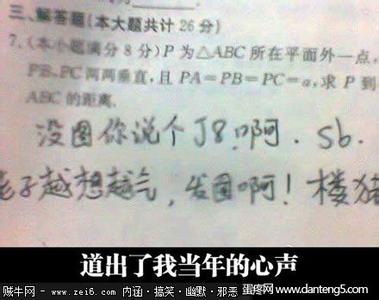 三、解答题(本大题共计26分)
7.(本小题满分8分)P为△ABC所在平面外一点,
PB、PC两两垂直,且PA=PB=PC=a,求P到
ABC的距离.
没图你说个J8.啊.Sb.
老子越想越气,发图啊!楼猪
道出了我当年的心声
贼牛网 - www.zei6.com 内涵·搞笑·幽默·邪恶 蛋疼网 www.danteng5.com